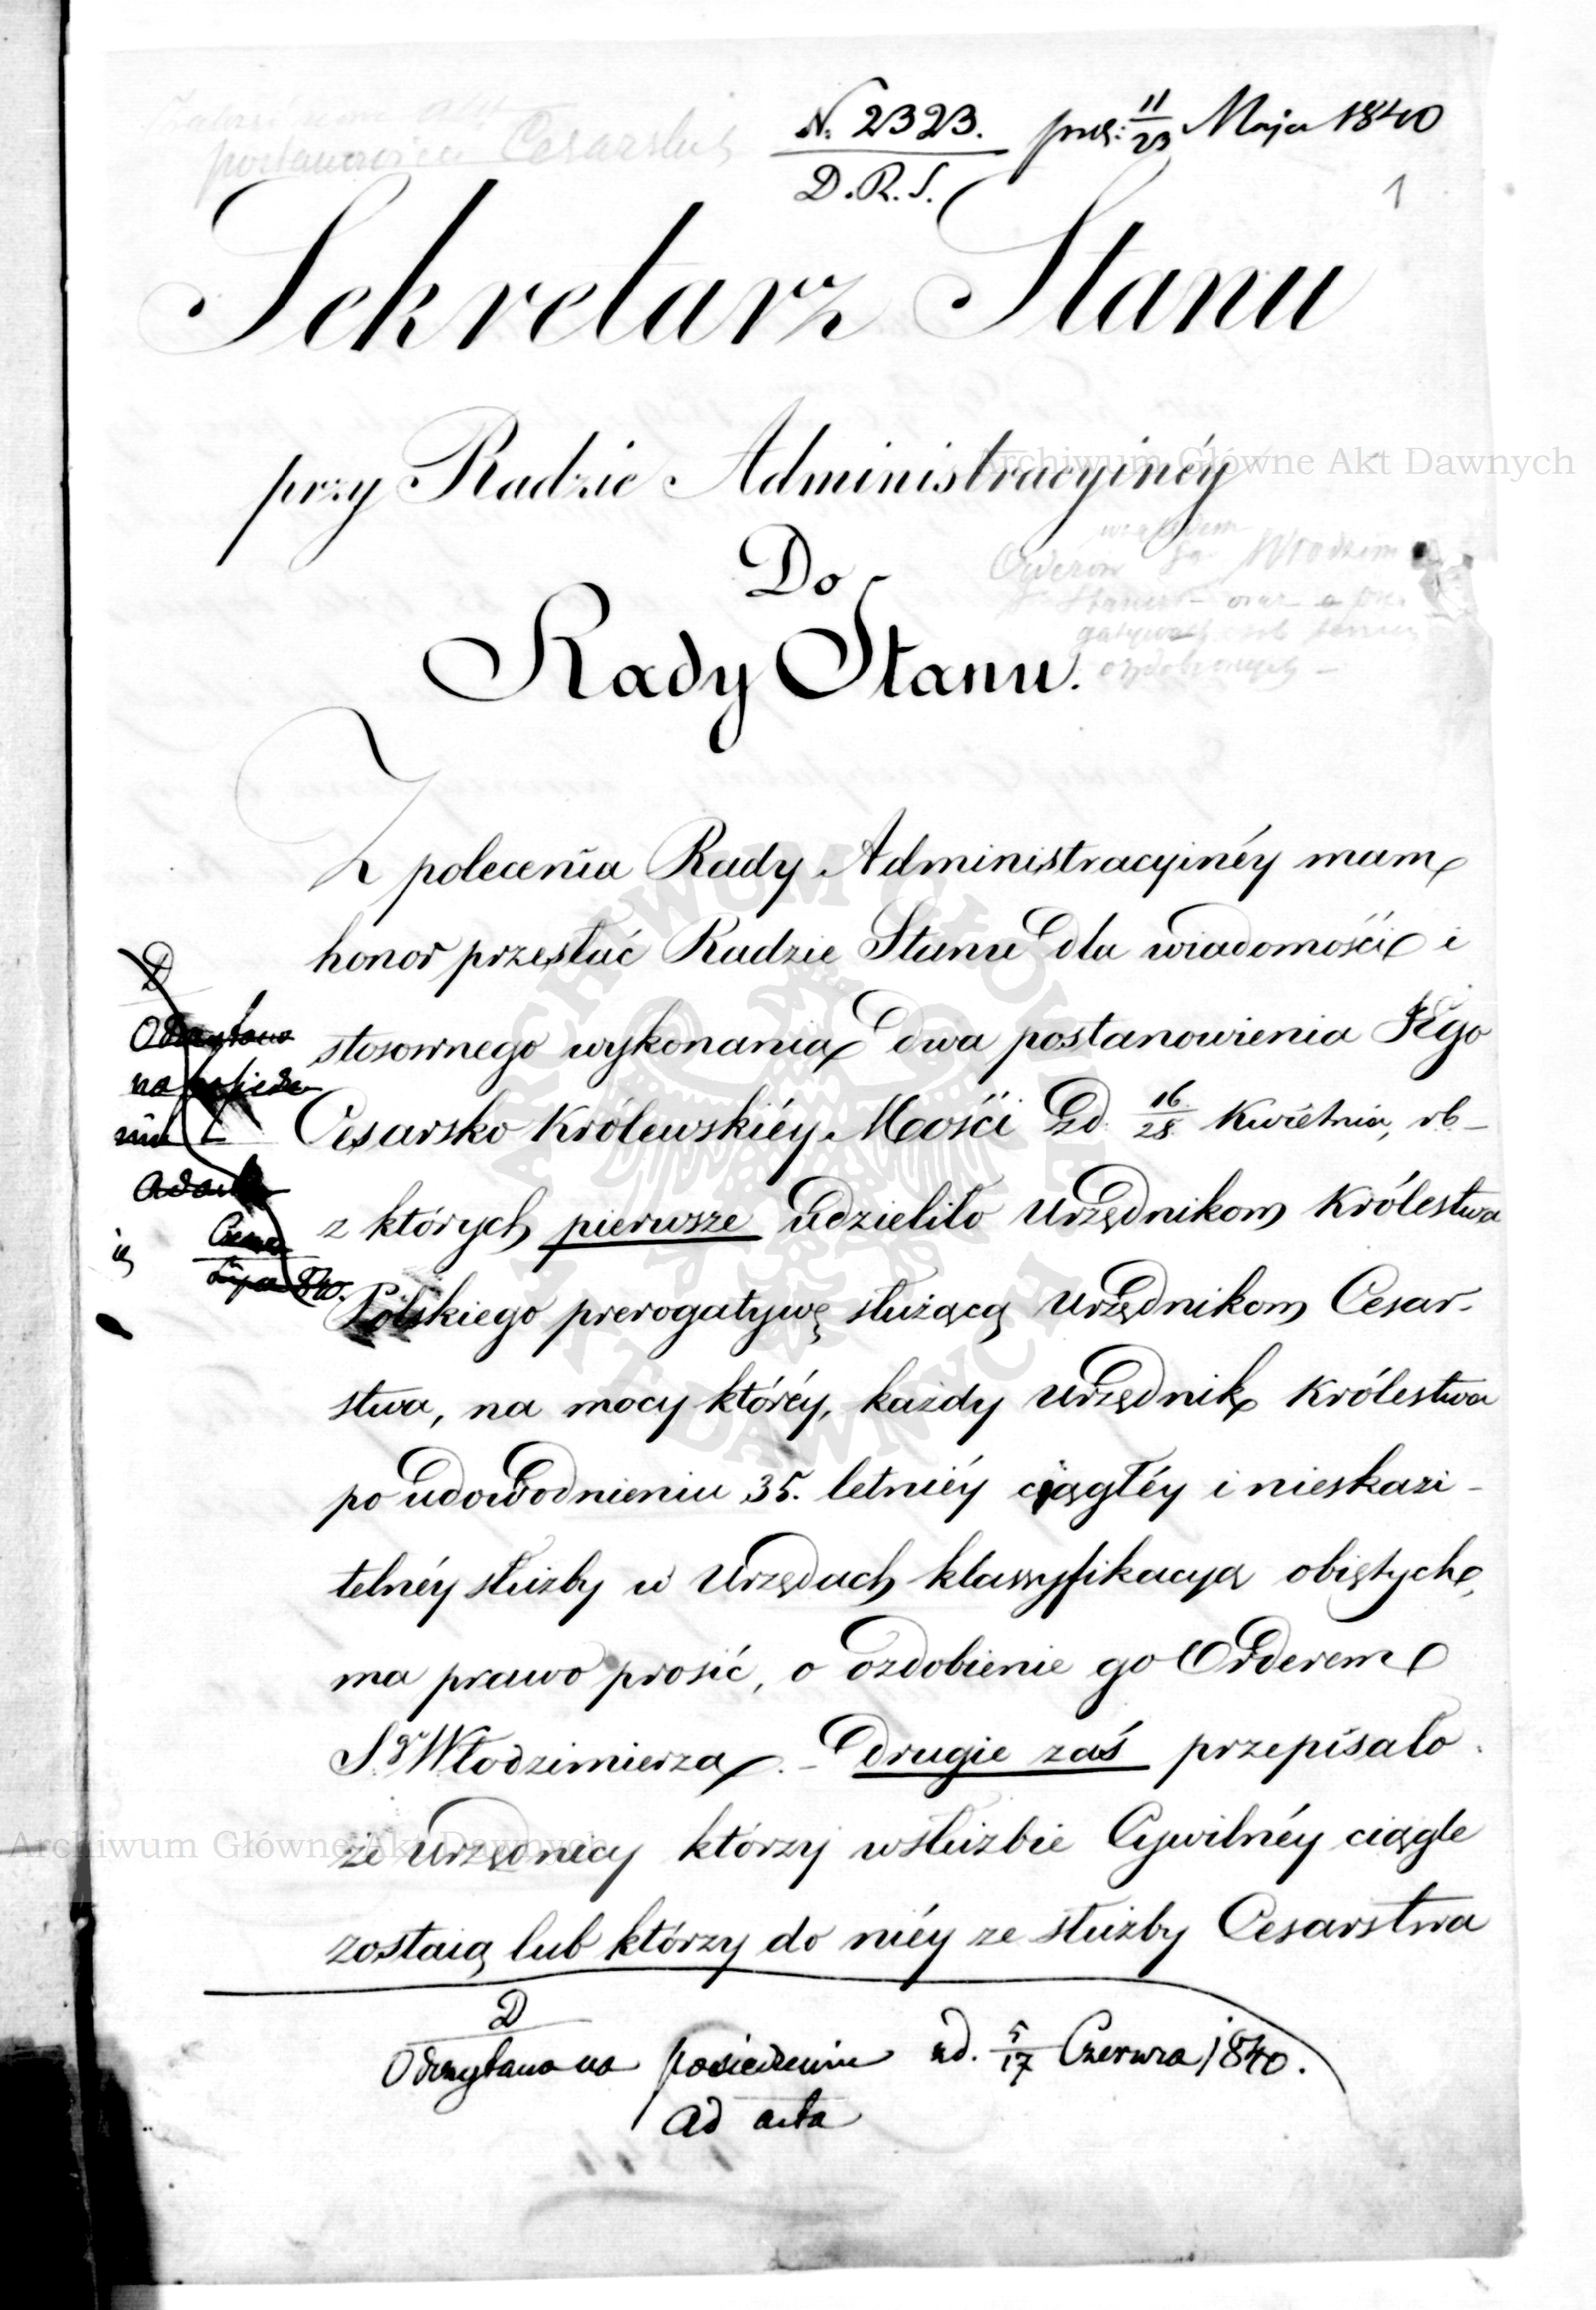 N. 2323. prez: 11/23 Maja 1840
D.R.S.
1
postanowienia Cesarskie
Sekretarz Stanu
przy Radzie Administracyinéy
Archiwum Główne Akt Dawnych
Do
względem
Orderów Sgo Włodzim
ozdobionych –
Rady Stanu.
Z polecenia Rady Administracyinéy mam
honor przesłać Radzie Stanu dla wiadomości i
stosownego wykonania dwa postanowienia Jego
Cesarsko Królewskiéy Mości z d. 16/28 Kwietnia, rb –
z których pierwsze udzieliło Urzędnikom Królestwa
Polskiego prerogatywę służącą Urzędnikom Cesar-
stwa, na mocy któréy, każdy Urzędnik Królestwa
po udowodnieniu 35. letniéy ciągłéy i nieskazi-
telnéy służby w Urzędach klassyfikacyą obiętych,
ma prawo prosić, o ozdobienie go Orderem
Sgo Włodzimierza. – drugie zaś przepisało
że Urzędnicy którzy w służbie Cywilnéy ciągle
zostaią lub którzy do niéy ze służby Cesarstwa
D
Odczytano
na posiedze
niu
Ad acta
Archiwum Główne Akt Dawnych
D
Odczytano na posiedzeniu z d. 5/17 Czerwca 1840.
ad acta
ARCHIWUM GŁÓWNE AKT DAWNYCH